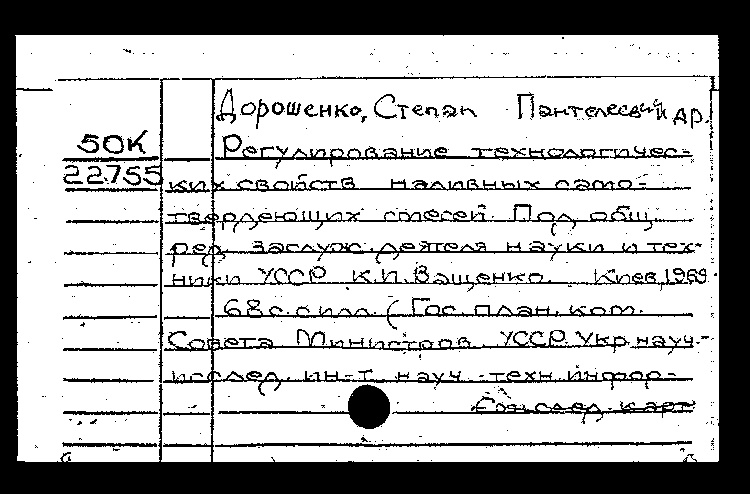 Дорошенко, Степан Пантелеевич и др.
50К
Регулирование технологичес-
22755
ких свойств наливных само-
твердеющих смесей. Под общ.
ред. заслуж. деятеля науки и тех-
ники УССР К.И. Ващенко. Киев, 1969.
68 с. с илл. (Гос. план. ком.
Совета Министров УССР. Укр. науч.-
исслед. ин-т науч.-техн. инфор-
след. карт